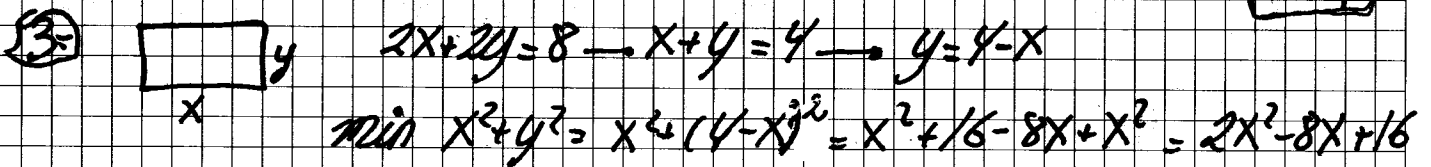 3.- y 2x+2y=8 → x+y=4 → y=4-x
x min x²+y²= x²+(4-x)² = x²+16-8x+x² = 2x²-8x+16